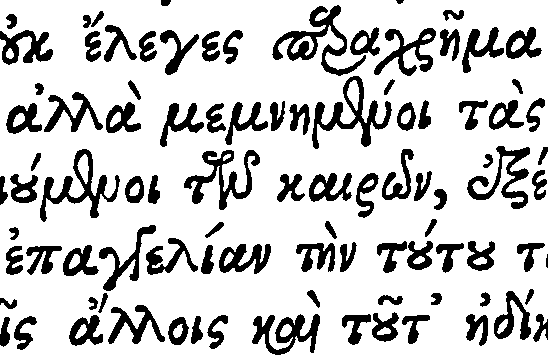 οὐκ ἔλεγες παραχρῆμα
ἀλλὰ μεμνημένοι τὰς
ούμενοι τῶν καιρῶν, ἐξέ
ἐπαγγελίαν τὴν τούτου τ
ῖς ἄλλοις καὶ τοῦτ' ἠδίκ